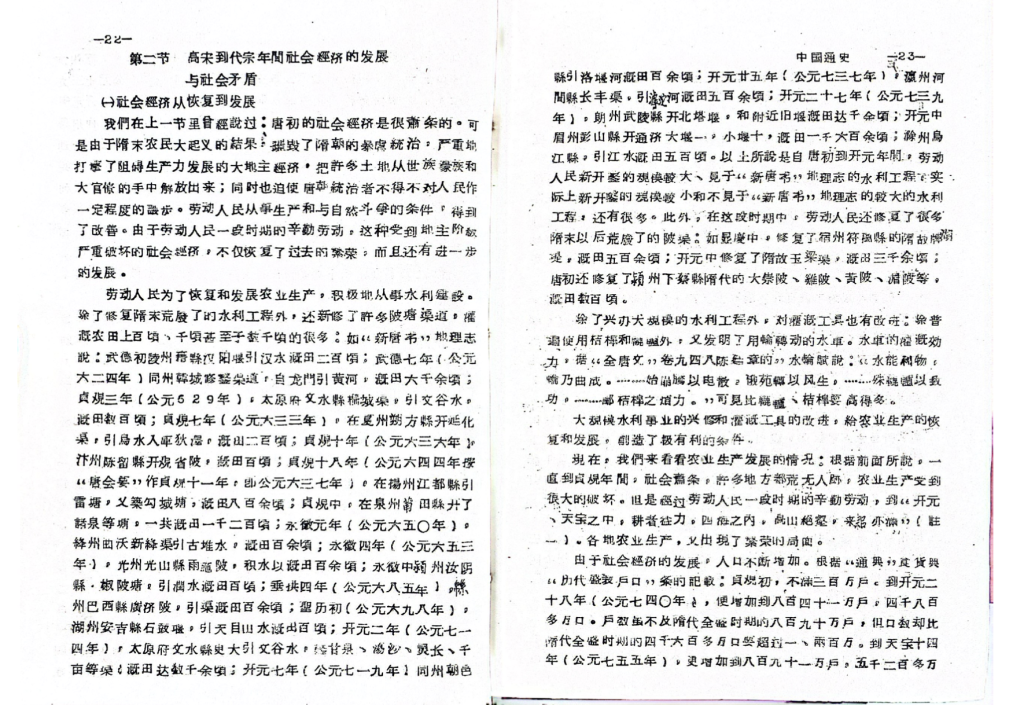 —22—
第二节 高宋到代宗年間社会經济的发展
与社会矛盾
㈠社会經济从恢复到发展
我們在上一节里曾經說过：唐初的社会經济是很蕭条的。可
是由于隋末农民大起义的結果，摧毁了隋朝的暴虐統治，严重地
打击了阻碍生产力发展的大地主經济，把許多土地从世族豪族和
大官僚的手中解放出来；同时也迫使唐朝統治者不得不对人民作
一定程度的讓步。劳动人民从事生产和与自然斗爭的条件，得到
了改善。由于劳动人民一段时期的辛勤劳动，这种受到地主阶级
严重破坏的社会經济，不仅恢复了过去的繁荣，而且还有进一步
的发展。
劳动人民为了恢复和发展农业生产，积极地从事水利建設。
除了修复隋末荒廢了的水利工程外，还新修了許多陂塘渠道，灌
溉农田上百頃、千頃甚至于数千頃的很多。如“新唐书”地理志
說：武德初陵州籍縣汉阳堰引汉水溉田二百頃；武德七年（公元
六二四年）同州韓城修整渠道，自龙門引黃河，溉田六千余頃；
貞覌三年（公元629年），太原府文水縣栅城渠，引文谷水，
溉田数百頃；貞覌七年（公元六三三年），在夏州朔方縣开延化
渠，引烏水入庫狄澤，溉田二百頃；貞覌十年（公元六三六年）
汴州陈留縣开覌省陂，溉田百頃；貞覌十八年（公元六四四年按
“唐会要”作貞覌十一年，即公元六三七年），在揚州江都縣引
雷塘，又筑勾城塘，溉田八百余頃；貞覌中，在泉州莆田縣开了
諸泉等塘，一共溉田一千二百頃；永徽元年（公元六五〇年），
絳州曲沃新絳渠引古堆水，溉田百余頃；永徽四年（公元六五三
年），光州光山縣雨施陂，积水以溉田百余頃；永徽中颍州汝阴
縣·椒陂塘，引潤水溉田百頃；垂拱四年（公元六八五年），綿
州巴西縣廣济陂，引渠溉田百余頃；聖历初（公元六九八年），
湖州安吉縣石鼓堰，引天目山水溉田百頃；开元二年（公元七一
四年），太原府文水縣史大引文谷水， 甘泉、 沙、灵长、千
亩等渠（溉田达数千余頃；开元七年（公元七一九年）同州朝邑
中国通史 —23—
縣引洛堰河溉田百余頃；开元廿五年（公元七三七年），瀛州河
間縣长丰渠，引滹沱河溉田五百余頃；开元二十七年（公元七三九
年），朗州武陵縣开北塔堰，和附近旧堰溉田达千余頃；开元中
眉州彭山縣开通济大堰一、小堰十，溉田一千六百余頃；滁州烏
江縣，引江水溉田五百頃。以上所說是自唐初到开元年間，劳动
人民新开鑿的規模較大、見于“新唐书”地理志的水利工程；实
际上新开鑿的規模較小和不見于“新唐书”地理志的較大的水利
工程，还有很多。此外，在这段时期中，劳动人民还修复了很多
隋末以后荒廢了的陂渠。如显慶中，修复了宿州符离縣的隋故牌湖
堤，溉田五百余頃；开元中修复了隋故玉梁渠，溉田三千余頃；
唐初还修复了颍州下蔡縣隋代的大崇陂、雞陂、黃陂、湄陂等，
溉田数百頃。
除了兴办大規模的水利工程外，对灌溉工具也有改进。除普
遍使用桔槔和轆轤外，又发明了用輪轉动的水車。水車的灌溉効
力，据“全唐文”卷九四八陈廷章的“水輪賦說：“水能利物，
輪乃曲成。………始崩騰以电散，俄宛轉以风生，………殊轆轤以致
功，………鄙桔槔之煩力。”可見比轆轤、桔槔要高得多。
大規模水利事业的兴修和灌溉工具的改进，給农业生产的恢
复和发展，創造了极有利的条件。
現在，我們来看看农业生产发展的情况：根据前面所說，一
直到貞覌年間，社会蕭条，許多地方都荒无人烟，农业生产受到
很大的破坏。但是經过劳动人民一段时期的辛勤劳动，到“开元
、天宝之中，耕者益力，四海之内，高山絕壑，耒耜亦滿”（註
一）。各地农业生产，又出現了繁荣的局面。
由于社会經济的发展，人口不断增加。根据“通典”食貨典
“历代盛衰戶口”条的記載：貞覌初，不滿三百万戶，到开元二
十八年（公元七四〇年），便增加到八百四十一万戶，四千八百
多万口。戶数虽不及隋代全盛时期的八百九十万戶，但口数却比
隋代全盛时期的四千六百多万口要超过一、兩百万。到天宝十四
年（公元七五五年），更增加到八百九十一万戶，五千二百多万